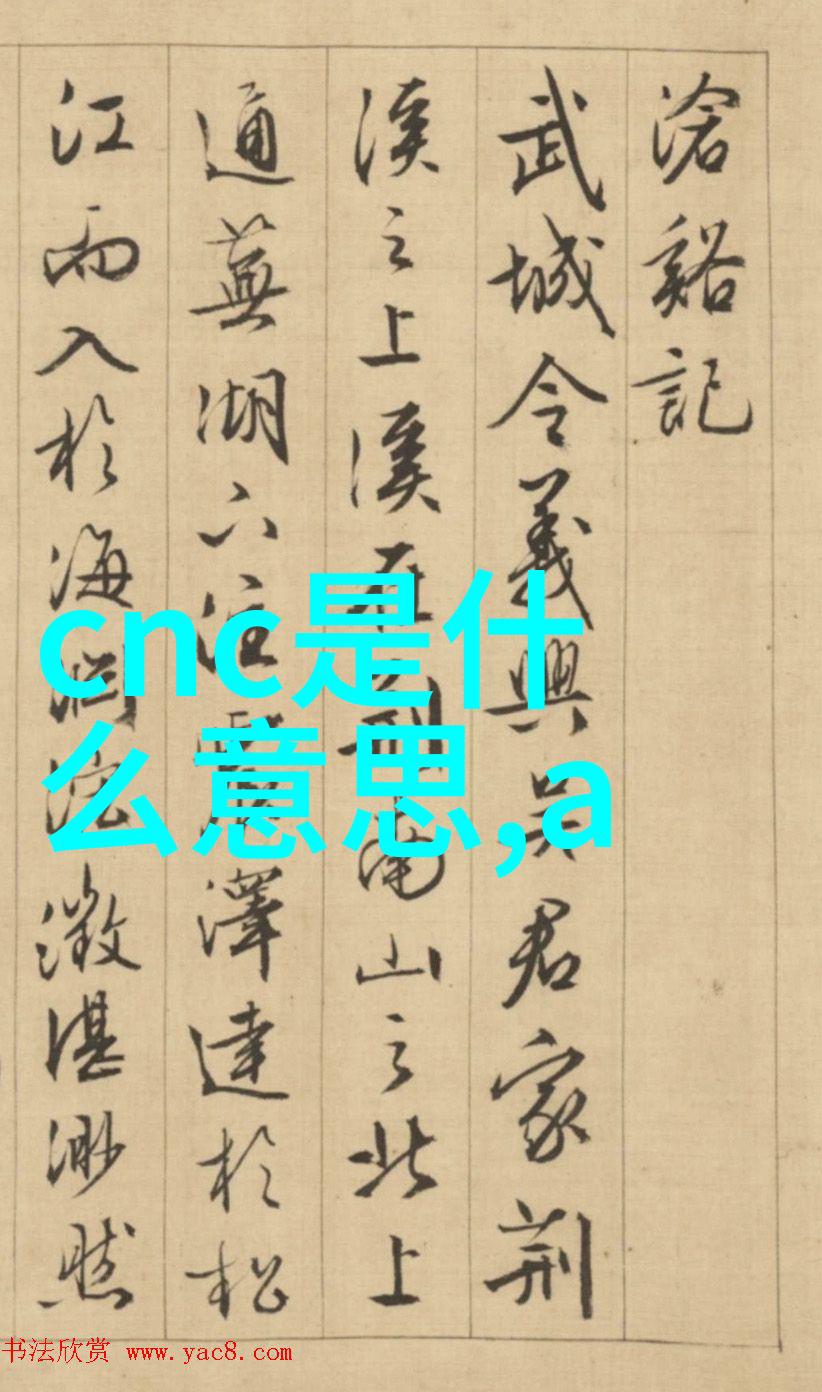 滄谿記
武城令義興吴君家荆
溪之上溪在荆南山之北上
通蕪湖下注震澤達於松
江而入於海
澂湛渺然
cnc是什
么意思,a
书法欣赏 www.yac8.com